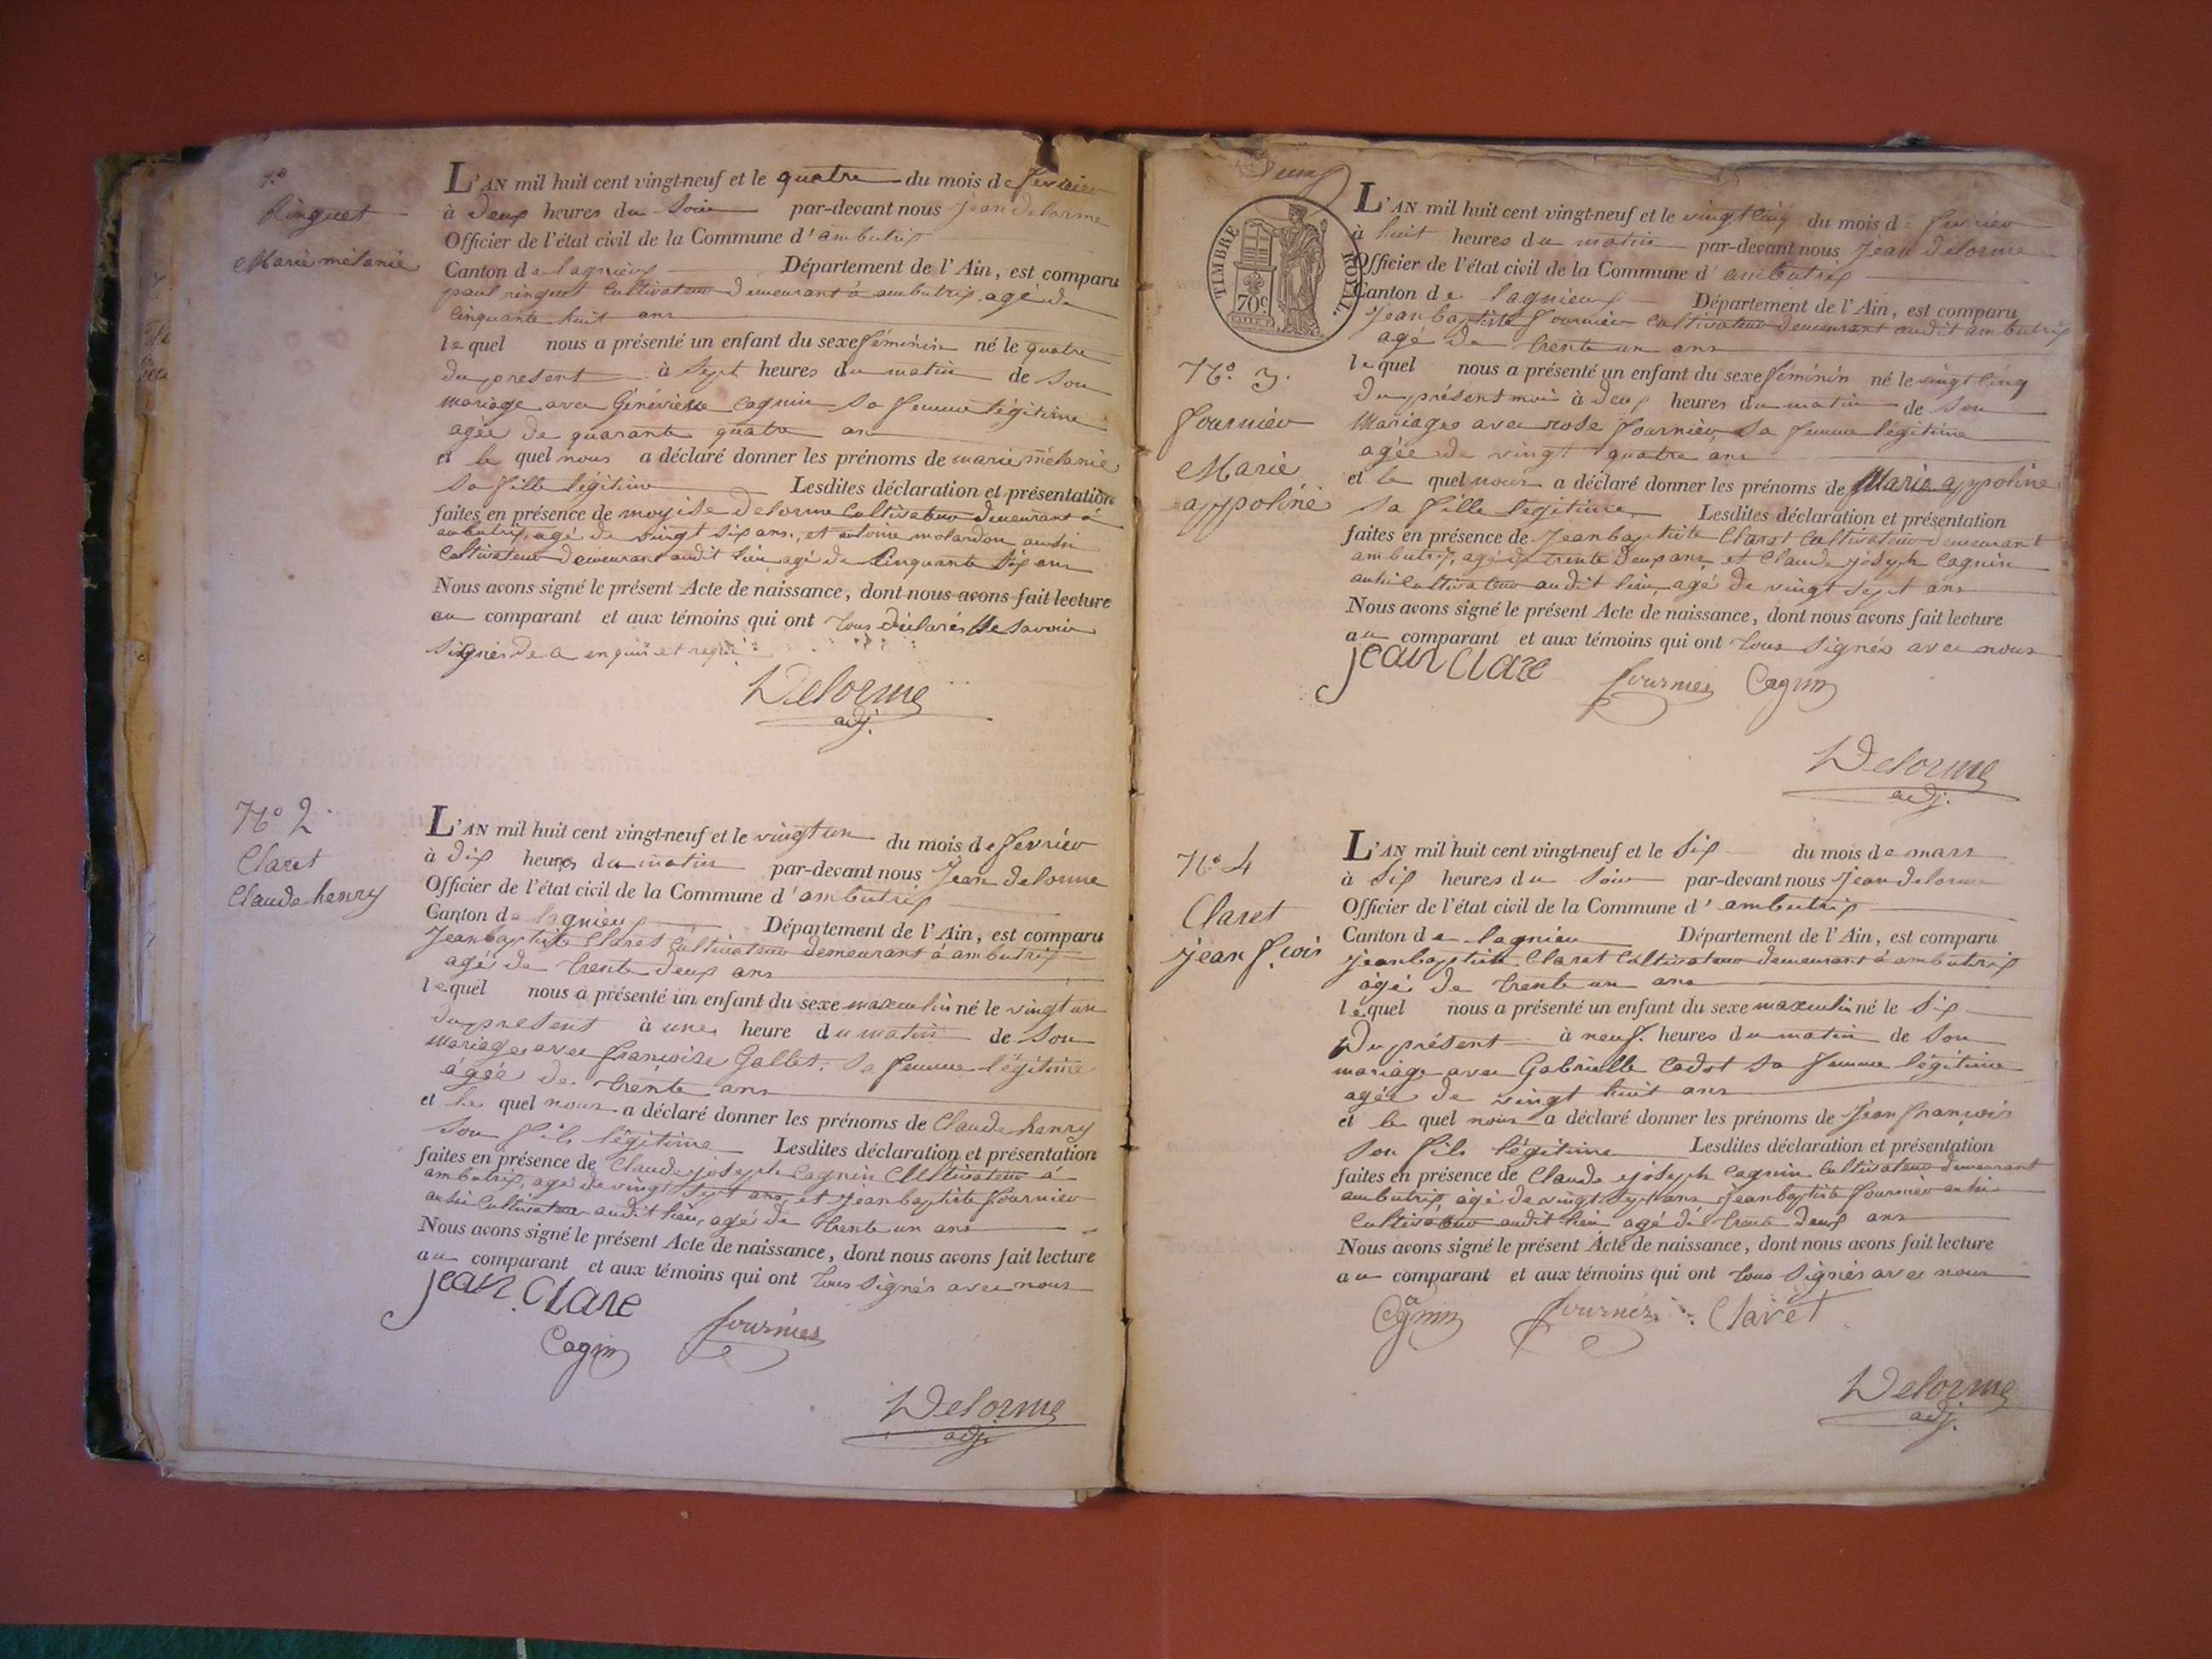 Ringuet
Marie mélanie
L'AN mil huit cent vingt-neuf et le quatre du mois de fevrier
à deux heures du soir par-devant nous jean delorme
Officier de l'état civil de la Commune d'ambutrix
Canton de lagnieux Département de l'Ain, est comparu
paul ringuet Cultivateur demeurant à ambutrix, agé de
Cinquante huit ans
lequel nous a présenté un enfant du sexe féminin né le quatre
du present à Sept heures du matin de Son
mariage avec Géneviève Cagnin Sa femme légitime
agée de quarante quatre an
et le quel nous a déclaré donner les prénoms de marie mélanie
Sa fille légitime Lesdites déclaration et présentation
faites en présence de moyise delorme Cultivateur demeurant à
ambutrix, agé de vingt Six ans, et antoine molardon aussi
Cultivateur demeurant audit lieu agé de Cinquante Six ans
Nous avons signé le présent Acte de naissance, dont nous avons fait lecture
au comparant et aux témoins qui ont tous déclarés ne Savoir
Signer de a enquis et requi
Delorme
adj.
N.º 2
Claret
Claude henry
L'AN mil huit cent vingt-neuf et le vingt un du mois de fevrier
à dix heures du matin par-devant nous Jean delorme
Officier de l'état civil de la Commune d'ambutrix
Canton de lagnieux Département de l'Ain, est comparu
Jean baptiste Claret Cultivateur demeurant à ambutrix
agé de trente deux ans
lequel nous a présenté un enfant du sexe masculin né le vingt un
du present à une heure du matin de Son
mariage avec françoise Gallet, Sa femme légitime
âgée de trente ans
et le quel nous a déclaré donner les prénoms de Claude henry
Son fils légitime Lesdites déclaration et présentation
faites en présence de Claude joseph Cagnin Cultivateur à
ambutrix, agé de vingt Sept ans, et jean baptiste fournier
aussi Cultivateur audit lieu, agé de trente un ans
Nous avons signé le présent Acte de naissance, dont nous avons fait lecture
au comparant et aux témoins qui ont tous Signés avec nous
jean Clare
Cagnin fournier
Delorme
adj.
Deux
TIMBRE ROYAL
70c
N.º 3.
fournier
Marie
appoline
L'AN mil huit cent vingt-neuf et le vingt Cinq du mois de fevrier
à huit heures du matin par-devant nous Jean delorme
Officier de l'état civil de la Commune d'ambutrix
Canton de lagnieux Département de l'Ain, est comparu
Jean baptiste fournier Cultivateur demeurant audit ambutrix
agé de trente un ans
lequel nous a présenté un enfant du sexe féminin né le vingt Cinq
du présent mois à deux heures du matin de Son
Mariage avec rose fournier, Sa femme légitime
agée de vingt quatre ans
et le quel nous a déclaré donner les prénoms de Marie appoline
Sa fille légitime Lesdites déclaration et présentation
faites en présence de Jean baptiste Claret Cultivateur demeurant
ambutrix, agé de trente deux ans et Claude joseph Cagnin
aussi Cultivateur audit lieu, agé de vingt Sept ans
Nous avons signé le présent Acte de naissance, dont nous avons fait lecture
au comparant et aux témoins qui ont tous Signés avec nous
jean Clare fournier Cagnin
Delorme
adj.
N.º 4
Claret
jean f.çois
L'AN mil huit cent vingt-neuf et le Six du mois de mars
à Six heures du Soir par-devant nous jean delorme
Officier de l'état civil de la Commune d'ambutrix
Canton de lagnieu Département de l'Ain, est comparu
jean baptiste Claret Cultivateur demeurant à ambutrix
agé de trente un ans
lequel nous a présenté un enfant du sexe masculin né le Six
Du présent à neuf heures du matin de Son
mariage avec Gabrielle Cadot Sa femme légitime
agée de vingt huit ans
et le quel nous a déclaré donner les prénoms de Jean françois
Son fils légitime Lesdites déclaration et présentation
faites en présence de Claude joseph Cagnin Cultivateur demeurant
ambutrix agé de vingt Sept ans jean baptiste fournier aussi
Cultivateur audit lieu agé de trente deux ans
Nous avons signé le présent Acte de naissance, dont nous avons fait lecture
au comparant et aux témoins qui ont tous Signés avec nous
Cagnin fournier Claret
Delorme
adj.